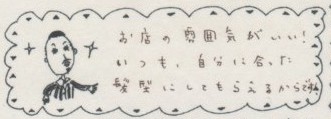 お店の雰囲気がいい!
いつも、自分に合った
髪型にしてもらえるからです。